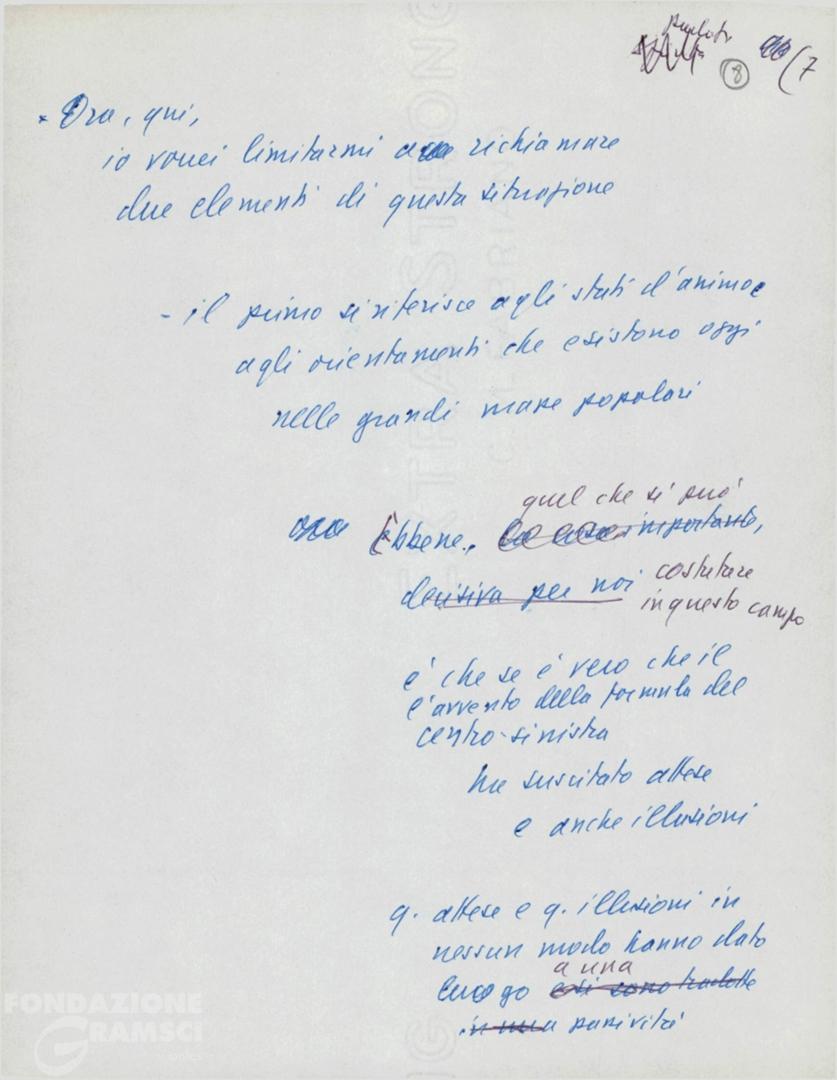 (8) (7
* Ora, qui,
io vorrei limitarmi a richiamare
due elementi di questa situazione
- il primo si riferisce agli stati d'animo e
agli orientamenti che esistono oggi
nelle grandi masse popolari
quel che si può
Ebbene, la cosa importante,
decisiva per noi costatare
in questo campo
è che se è vero che il
l'avvento della formula del
centro-sinistra
ha suscitato attese
e anche illusioni
q. attese e q. illusioni in
nessun modo hanno dato
a una
luogo si sono tradotte
in una passività
FONDAZIONE
GRAMSCI
onlus